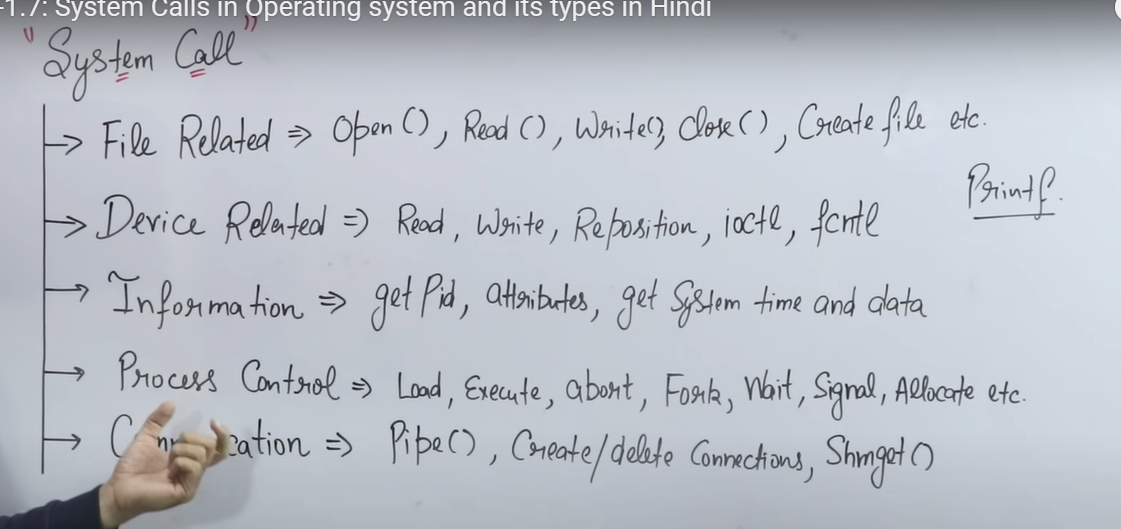 -1.7: System Calls in Operating system and its types in Hindi
"System Call"
→ File Related ⇒ Open (), Read (), Write(), Close (), Create file etc.
Printf.
→ Device Related ⇒ Read, Write, Reposition, ioctl, fcntl
→ Information ⇒ get Pid, attributes, get System time and data
→ Process Control ⇒ Load, Execute, abort, Fork, Wait, Signal, Allocate etc.
→ ⇒ Pipe(), Create/delete Connections, Shmget ()